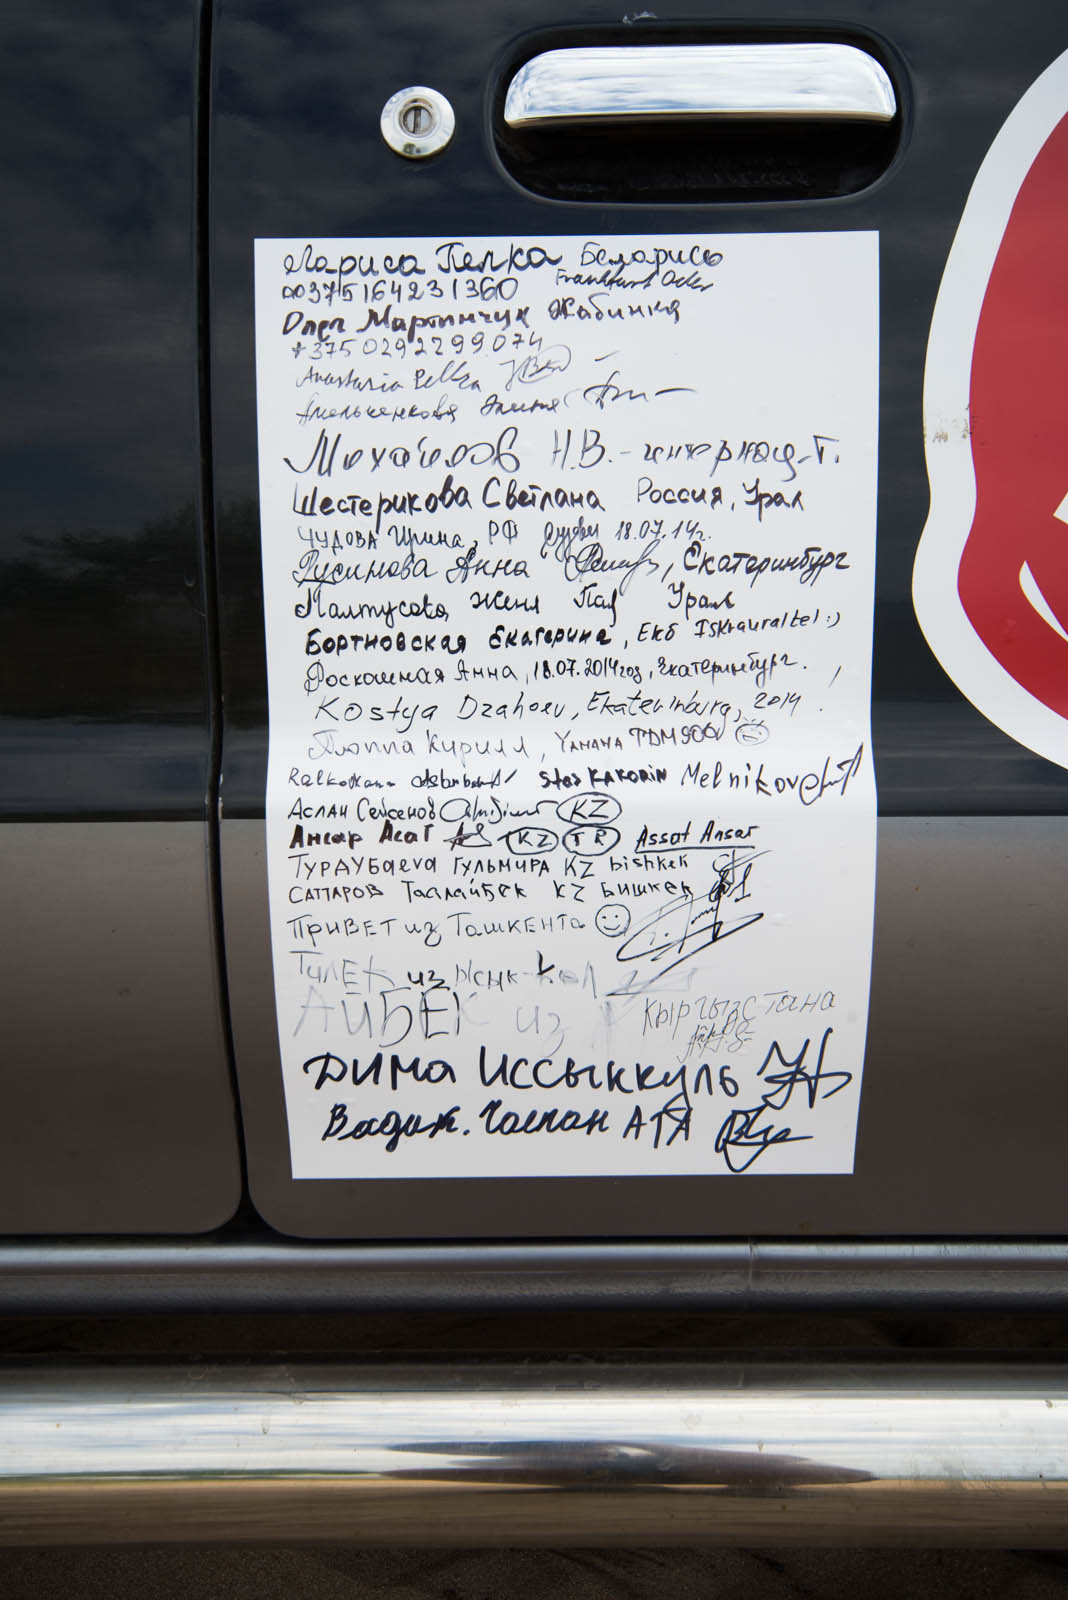 Лариса Пелка Беларусь
00375164231360 Frankfurt Oder
Олег Мартынчук Жабинка
+3750292299074
Anastasia Pelka
Амельченкова
Михайлов Н.В. - интернац-т.
Шестерикова Светлана Россия, Урал
Чудова Ирина, РФ 18.07.14г.
Русинова Анна , Екатеринбург
Палтусова Женя Урал
Бортновская Екатерина, Екб Iskrauraltel :)
Роскошная Анна, 18.07.2014год, Екатеринбург.
Kostya Dzahoev, Ekaterinburg, 2014 !
Кирилл, YAMAHA TDM900
Stas KAKORIN Melnikov
Аслан Сейсенов KZ
Ансар Асат KZ TR Assat Ansar
Турдубаеvа Гульмира KZ bishkek
Саттаров Таалайбек KZ Бишкек
Привет из Ташкента
Тилек из Ысык-Көл
Айбек из Кыргызстана
Дима Иссыккуль
Вадим. Чолпан АТА